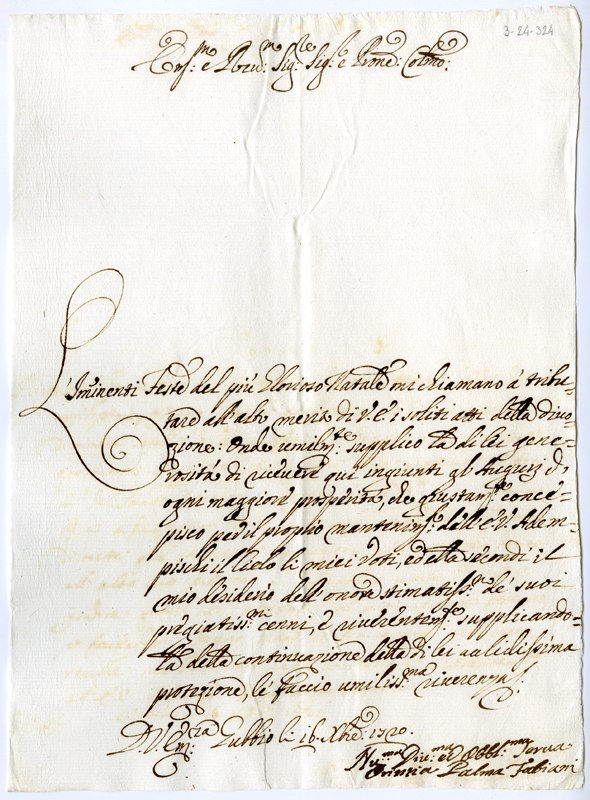 3-24-324
Em: e Rev: Sig: Sig: e Prone: Colmo:
L'Iminenti Feste del più Glorioso Natale mi chiamano à tribu=
tare all'alto merito di V.E. i soliti atti della divo=
zione: Onde umilm:te supplico la di lei gene=
rosità di ricevere qui ingiunti gl'Auguri d'
ogni maggiore prosperità, che giustam:te conce=
pisco per il proprio mantenim:to dell'E.V. Adem=
pischi il Cielo li miei Voti, ed ella secondi il
mio desiderio dell'onore stimatiss:mo de' suoi
pregiatiss:mi cenni, e riverentem:te supplicando=
la della continuazione della di lei validissima
protezione, le faccio umiliss:ma riverenza.
D.V. Em:za Gubbio li 16 Xbre 1720.
Hu:ma Div:ma ed Obbl:ma Serva
Palma Fabiani